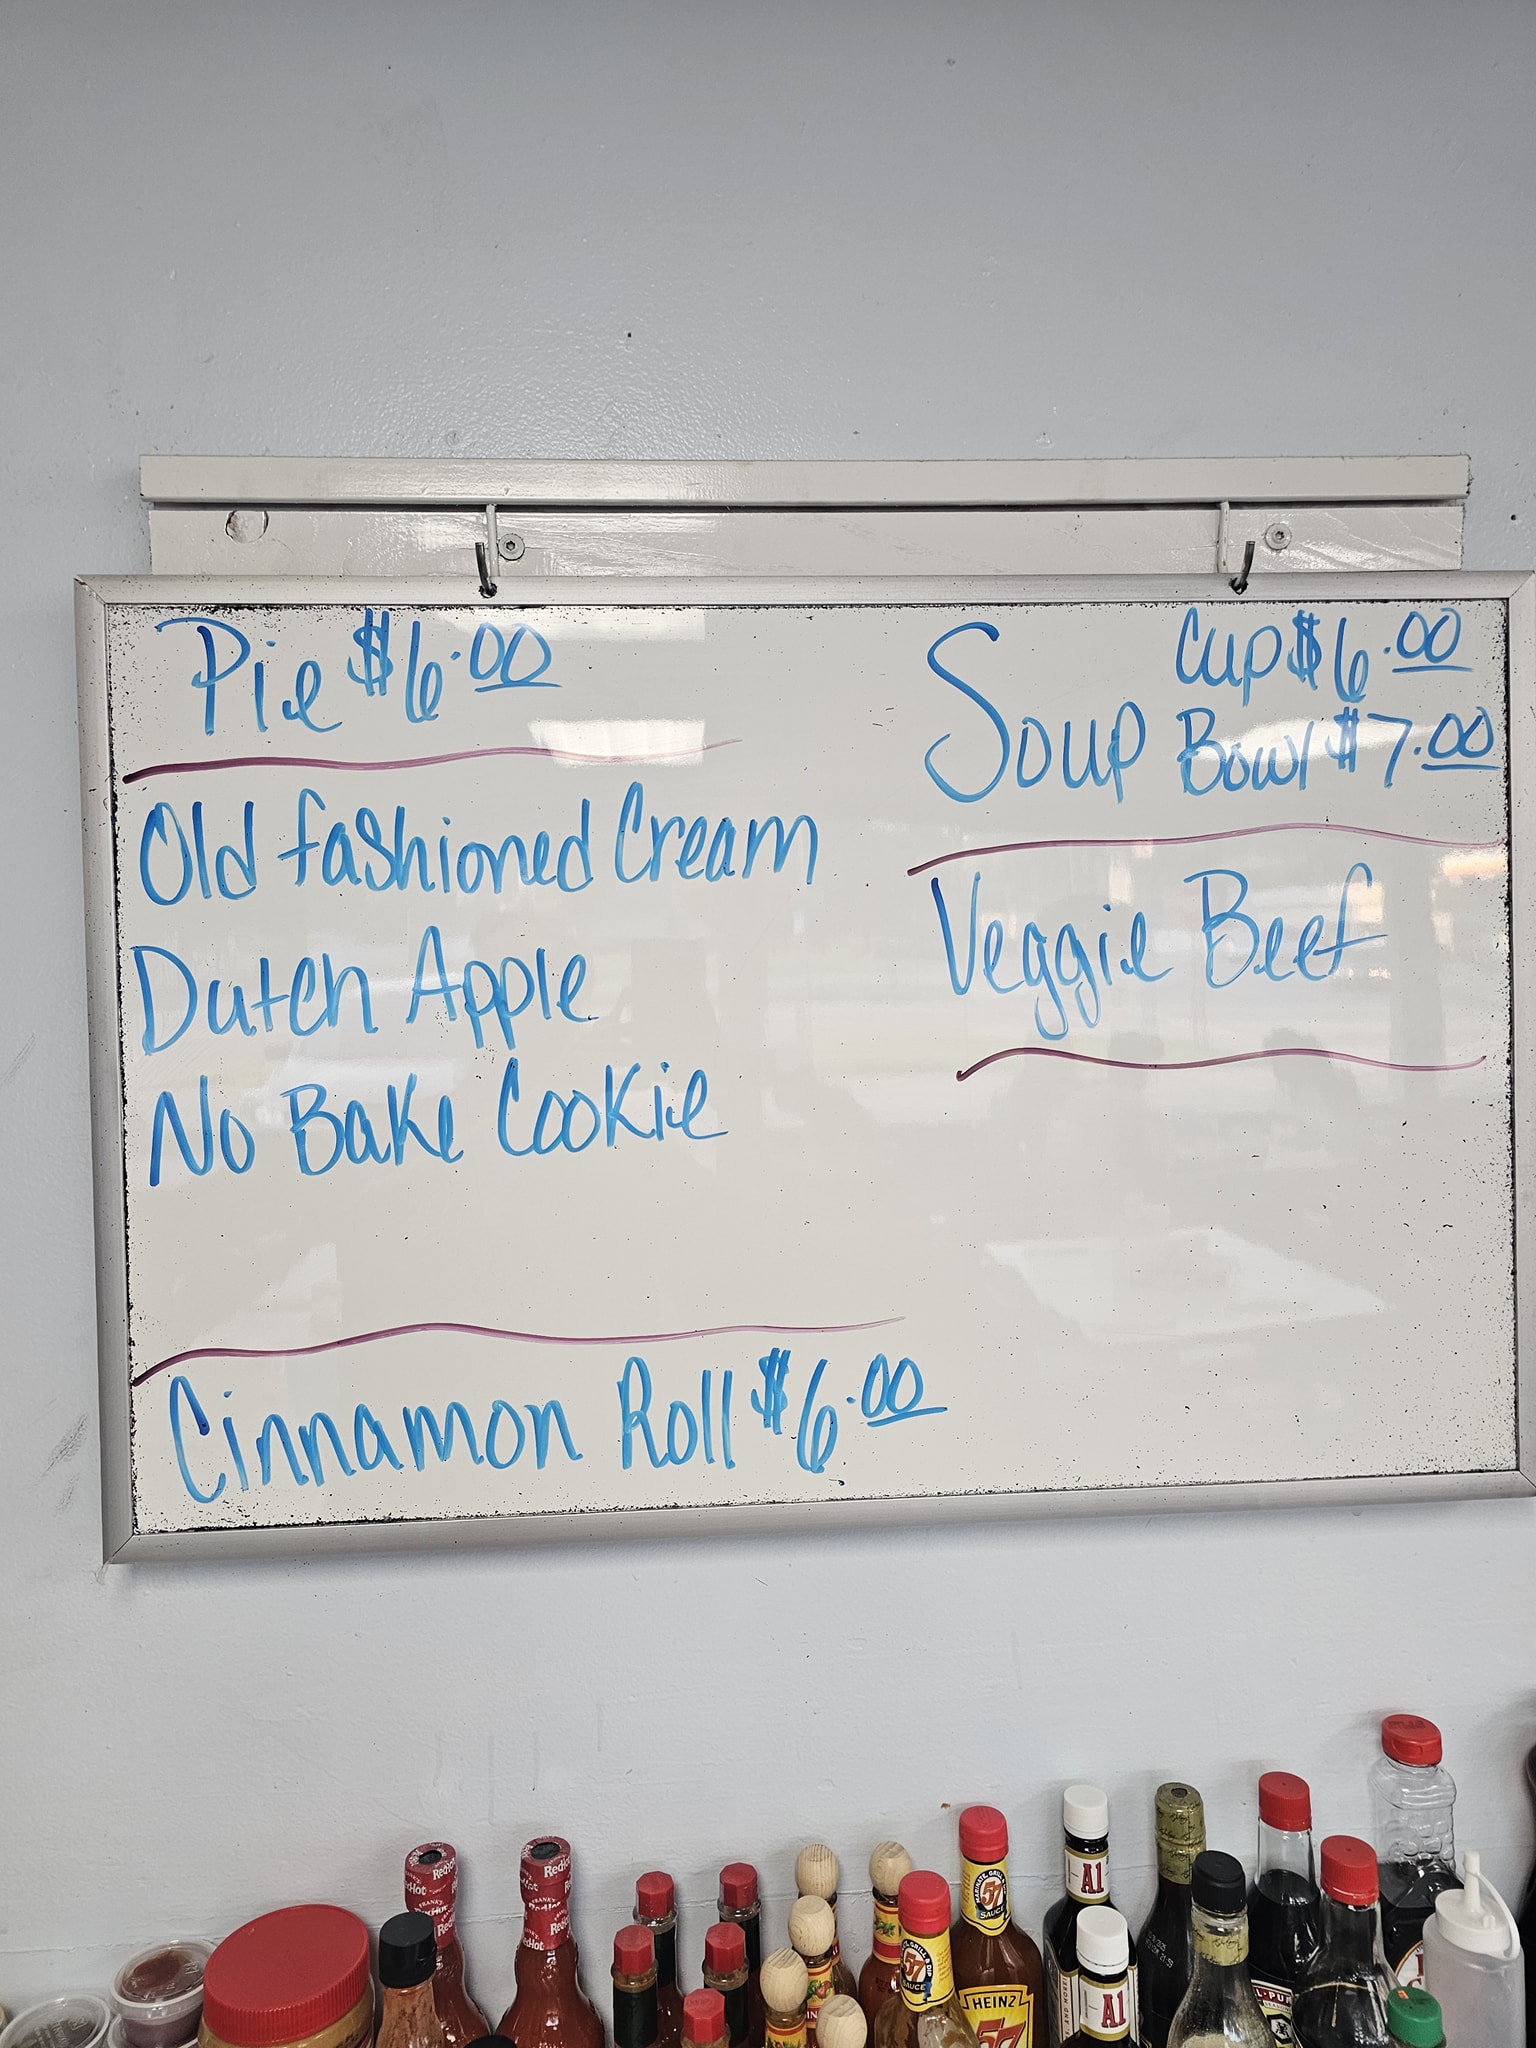 Pie $6.00
Old fashioned Cream
Dutch Apple
No Bake Cookie
Cinnamon Roll $6.00
Soup Cup $6.00
Bowl $7.00
Veggie Beef
RedHot
RedHot
FRANK'S
RedHot
57
SAUCE
57
SAUCE
HEINZ
57
A1
A1